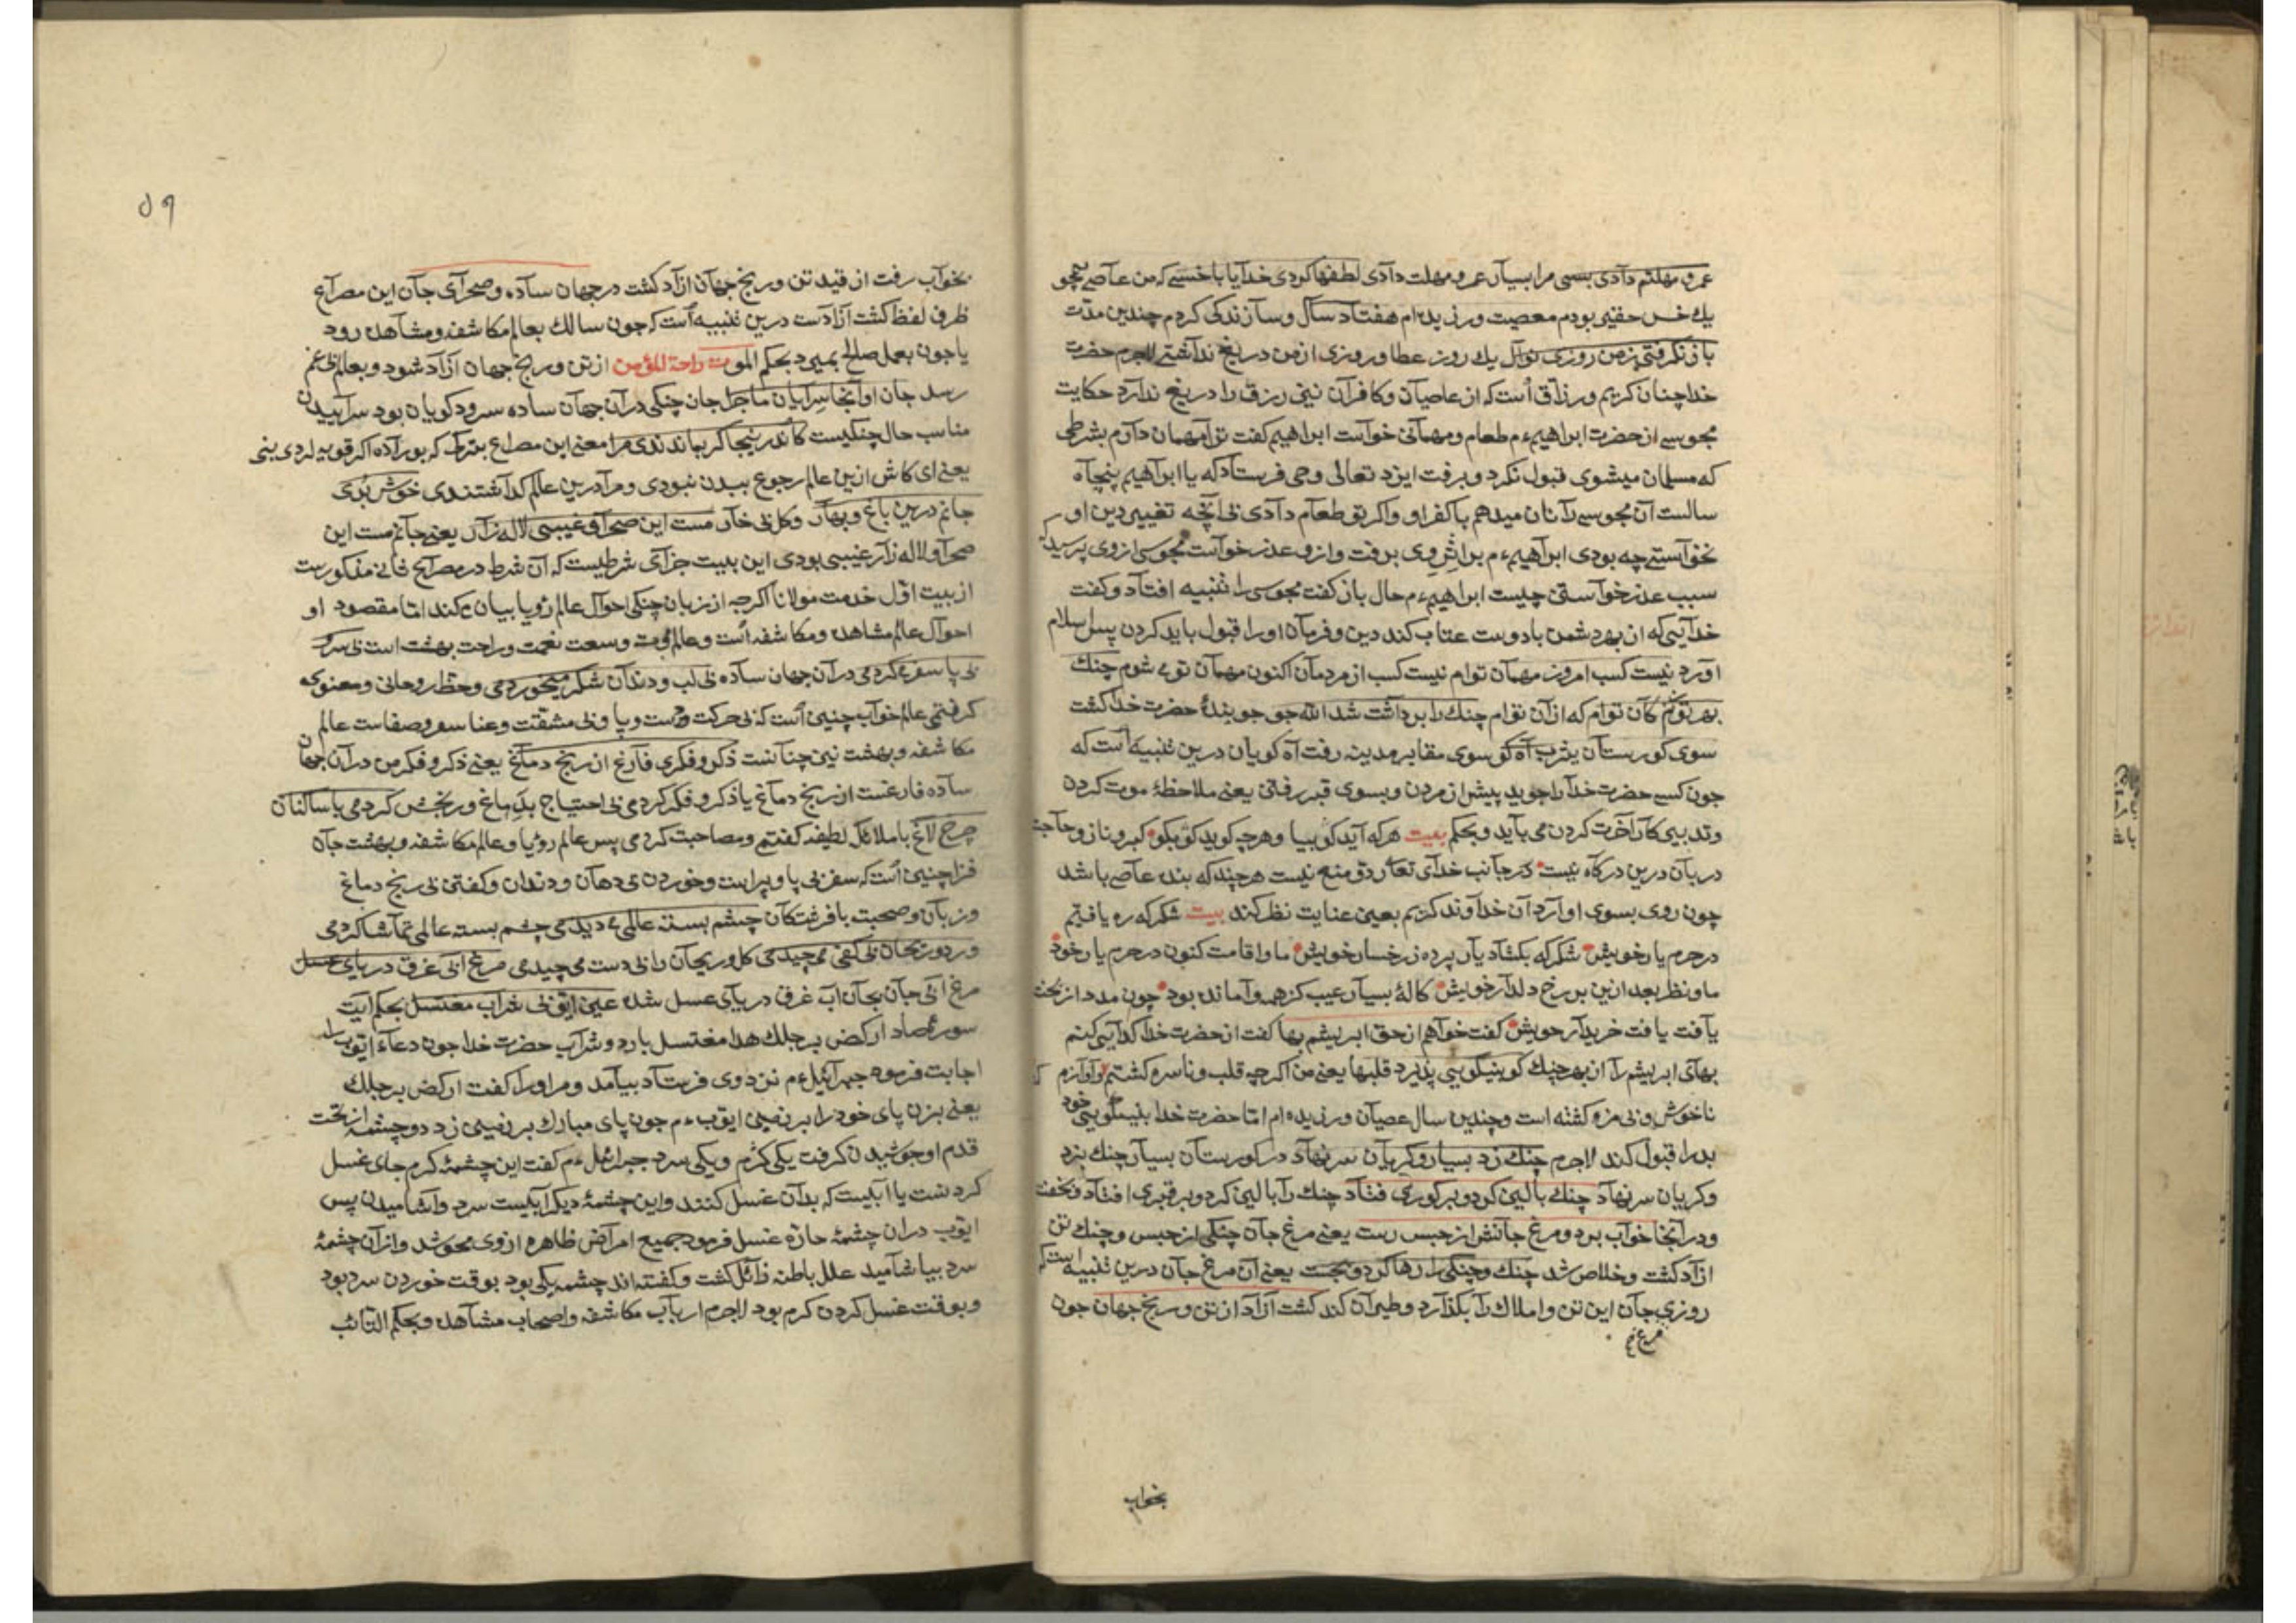 عمر و مهلتم دادی بسی مرا بسیار عمر و مهلت دادی لطفها کردی خدایا با خسی که من عاصی همچو
یك خس حقیر بودم معصیت ورزیده‌ام هفتاد سال و سا زندکی کردم چندین مدّت
باز نکرفتی ز من روزی نوال یك روز عطا و روزی از من دریغ نداشتی لاجرم حضرت
خدا چنان کریم و رزّاق است که از عاصیان و کافران نیز رزق را دریغ ندارد حکایت
مجوسی از حضرت ابراهیم ع م طعام و مهمانی خواست ابراهیم کفت ترا مهمان دارم بشرطی
که مسلمان میشوی قبول نکرد و برفت ایزد تعالی وحی فرستاد که یا ابراهیم پنجاه
سالست آن مجوسی را نان میدهم با کفر او و اکر تو طعام دادی بی آنچه تغییر دین او
نخواستی چه بودی ابراهیم ع م بر اثر وی برفت و ازو عذر خواست مجوسی از وی پرسید که
سبب عذر خواستن چیست ابراهیم ع م حال باز کفت مجوسی را تنبیه افتاد و کفت
خدایی که از بهر دشمن با دوست عتاب کند دین و فرمان او را قبول باید کردن پس اسلام
اورد نیست کسب امروز مهمان توام نیست کسب از مردمان اکنون مهمان تو می شوم چنك
بهر تو زنم کان توام که از آن توام چنك را برداشت شد الله جو جویندۀ حضرت خدا کشت
سوی کورستان یثرب آه کو سوی مقابر مدینه رفت آه کویان درین تنبیه است که
جون کسی حضرت خدا را جوید پیش از مردن و بسوی قبر رفتن یعنی ملاحظۀ موت کردن
و تدبیر کار آخرت کردن می باید و بحکم بیت هر که آید کو بیا و هرچه کوید کو بکو کبر و ناز و حاجب
دربان درین درکاه نیست از جانب خدای تعالی ردّ و منع نیست هر چند که بنده عاصی باشد
چون روی بسوی او آرد آن خداوند کریم بعین عنایت نظر کند بیت شکر که ره یافتیم
در حرم یار خویش شکر که بکشاد یار پرده ز رخسار خویش ما و اقامت کنون در حرم یار خود
ما و نظر بعد ازین بر رخ دلدار خویش کالۀ بسیار عیب کز همه وامانده بود چون مدد از بخت
یافت یافت خریدار خویش کفت خواهم از حق ابریشم بها کفت از حضرت خدا کدایی کنم
بهای ابریشم را از بهر چنك کو بنیکویی پذیرد قلبها یعنی من اکرچه قلب و ناسره کشتم و آوازم
ناخوش و بی مزه کشته است و چندین سال عصیان ورزیده‌ام امّا حضرت خدا بنیکویی خود
بد را قبول کند لاجرم چنك زد بسیار و کریان سر نهاد در کورستان بسیار چنك بزد
و کریان سر نهاد چنك بالین کرد و بر کوری فتاد چنك را بالین کرد و بر قبری افتاد و بخفت
و در انجا خواب برد و مرغ جانش از حبس رست یعنی مرغ جان چنکی از حبس و چنك تن
ازاد کشت و خلاص شد چنك و چنکی را رها کرد و بجست یعنی آن مرغ جان درین تنبیه است که
روزی جان این تن و املاك را بکذارد و طیران کند کشت آزاد از تن و رنج جهان جون
بخواب
٥٩
بخواب رفت از قید تن و رنج جهان ازاد کشت در جهان ساده و صحرای جان این مصراع
ظرف لفظ کشت آزادست درین تنبیه است که جون سالك بعالم مکاشفه و مشاهده رود
یا جون بعمل صالح بمیرد بحکم الموت راحة المؤمن از تن و رنج جهان آزاد شود و بعالم بی غم
رسد جان او آنجا سرایان ماجرا جان چنکی در آن جهان ساده سرود کویان بود سراییدن
مناسب حال چنکیست کاندرینجا کر بماندندی مرا معنی این مصراع
یعنی ای کاش ازین عالم رجوع ببدن نبودی و مرا درین عالم کذاشتندی خوش بدی
جانم درین باغ و بهار و کل بی خار مست این صحرا و غیبی لاله زار یعنی جانم مست این
صحرا و لاله زار غیبی بودی این بیت جزای شرطیست که آن شرط در مصراع ثانی مذکورست
از بیت اوّل خدمت مولانا اکرچه از زبان چنکی احوال عالم رؤیا بیان می کند امّا مقصود او
احوال عالم مشاهده و مکاشفه است و عالم موت و وسعت نعمت و راحت بهشت است بی سر
بی پا سفر می کردمی در آن جهان ساده بی لب و دندان شکر میخوردمی و حظّ روحانی و معنوی
کرفتمی عالم خواب چنین است که بی حرکت دست و پا و بی مشقّت و عنا سفر و صفاست عالم
مکاشفه و بهشت نیز چنانست ذکر و فکری فارغ از رنج دماغ یعنی ذکر و فکر من در آن جهان
ساده فارغست از رنج دماغ یا ذکر و فکر کردمی بی احتیاج بدماغ و رنجش کردمی با ساکنان
چرخ لاغ با ملائك لطیفه کفتم و مصاحبت کردمی پس عالم رؤیا و عالم مکاشفه و بهشت جان
فزا چنین است که سفر بی پا و پراست و خوردن بی دهان و دندان و کفتن بی رنج دماغ
و زبان و صحبت با فرشتکان چشم بسته عالمی می دیدمی چشم بسته عالمی تماشا کردمی
ورد و ریحان بی کفی می چیدمی کل و ریحان را بی دست می چیدمی مرغ ابی غرق دریای عسل
مرغ ابی جان بجان اب غرق دریای عسل شده عین ایّوبی شراب مغتسل بحکم ایت
سورۀ صاد ارکض برجلك هذا مغتسل بارد و شراب حضرت خدا جون دعاء ایّوب را
اجابت فرمود جبرائیل ع م نزد وی فرستاد بیامد و مر او را کفت ارکض برجلك
یعنی بزن پای خود را بر زمین ایّوب ع م جون پای مبارك بر زمین زد دو چشمه از تحت
قدم او جوشیدن کرفت یکی کرم و یکی سرد جبرائیل ع م کفت این چشمۀ کرم جای غسل
کردنست یا آبیست که بدان غسل کنند و این چشمۀ دیکر ابیست سرد و اشامیدن پس
ایّوب دران چشمۀ حارّه غسل فرمود جمیع امراض ظاهره از وی محو شد و از آن چشمۀ
سرد بیاشامید علل باطنه زائل کشت و کفته اند چشمه یکی بود بوقت خوردن سرد بود
و بوقت غسل کردن کرم بود لاجرم ارباب مکاشفه و اصحاب مشاهده و بحکم التائب